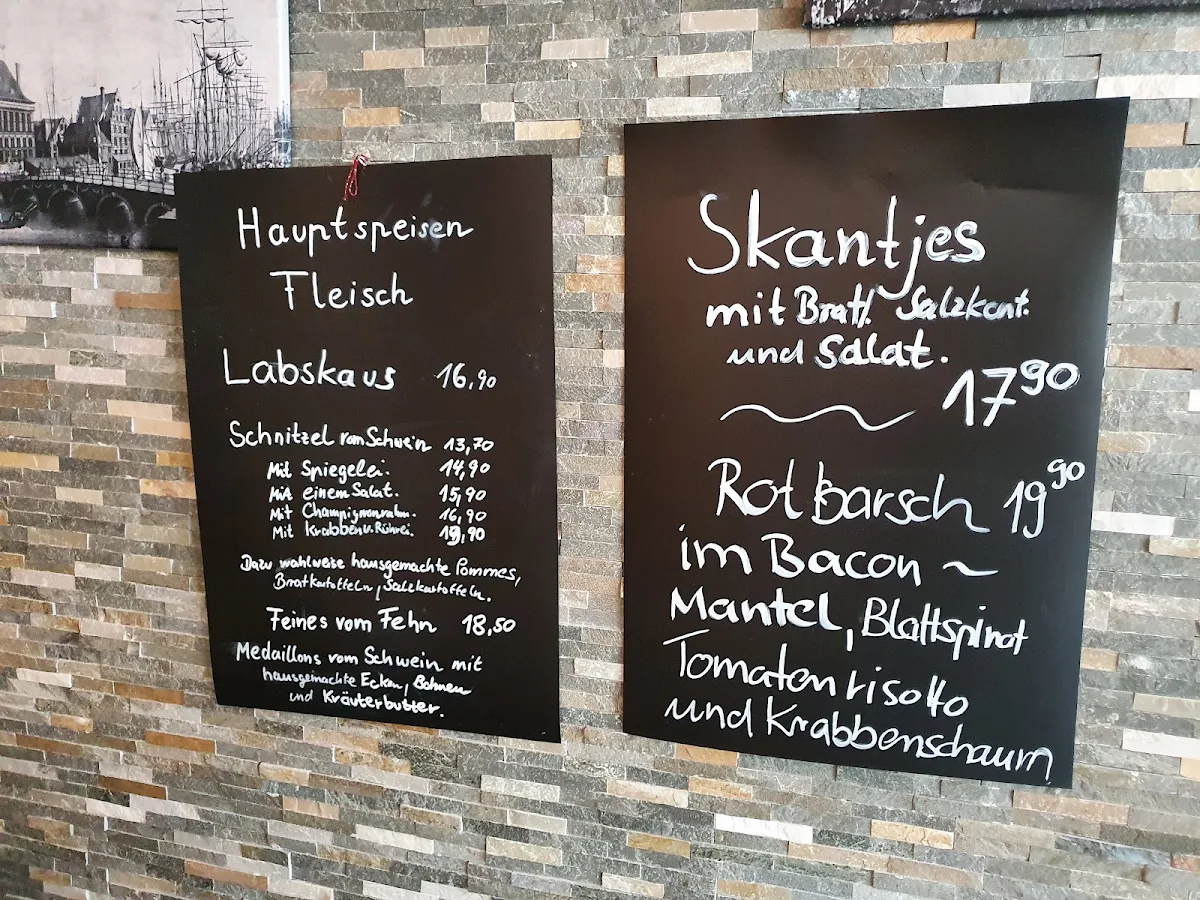 Hauptspeisen
Fleisch
Labskaus 16,90
Schnitzel vom Schwein 13,70
Mit Spiegelei. 14,90
Mit einem Salat. 15,90
Mit Champignonrahm. 16,90
Mit Krabben u. Rührei. 19,90
Dazu wahlweise hausgemachte Pommes,
Bratkartoffeln, Salzkartoffeln.
Feines vom Fehn 18,50
Medaillons vom Schwein mit
hausgemachte Ecken, Bohnen
und Kräuterbutter.
Skantjes
mit Bratk. Salzkart.
und Salat.
17 90
Rotbarsch 19 90
im Bacon ~
Mantel, Blattspinat
Tomatenrisotto
und Krabbenschaum